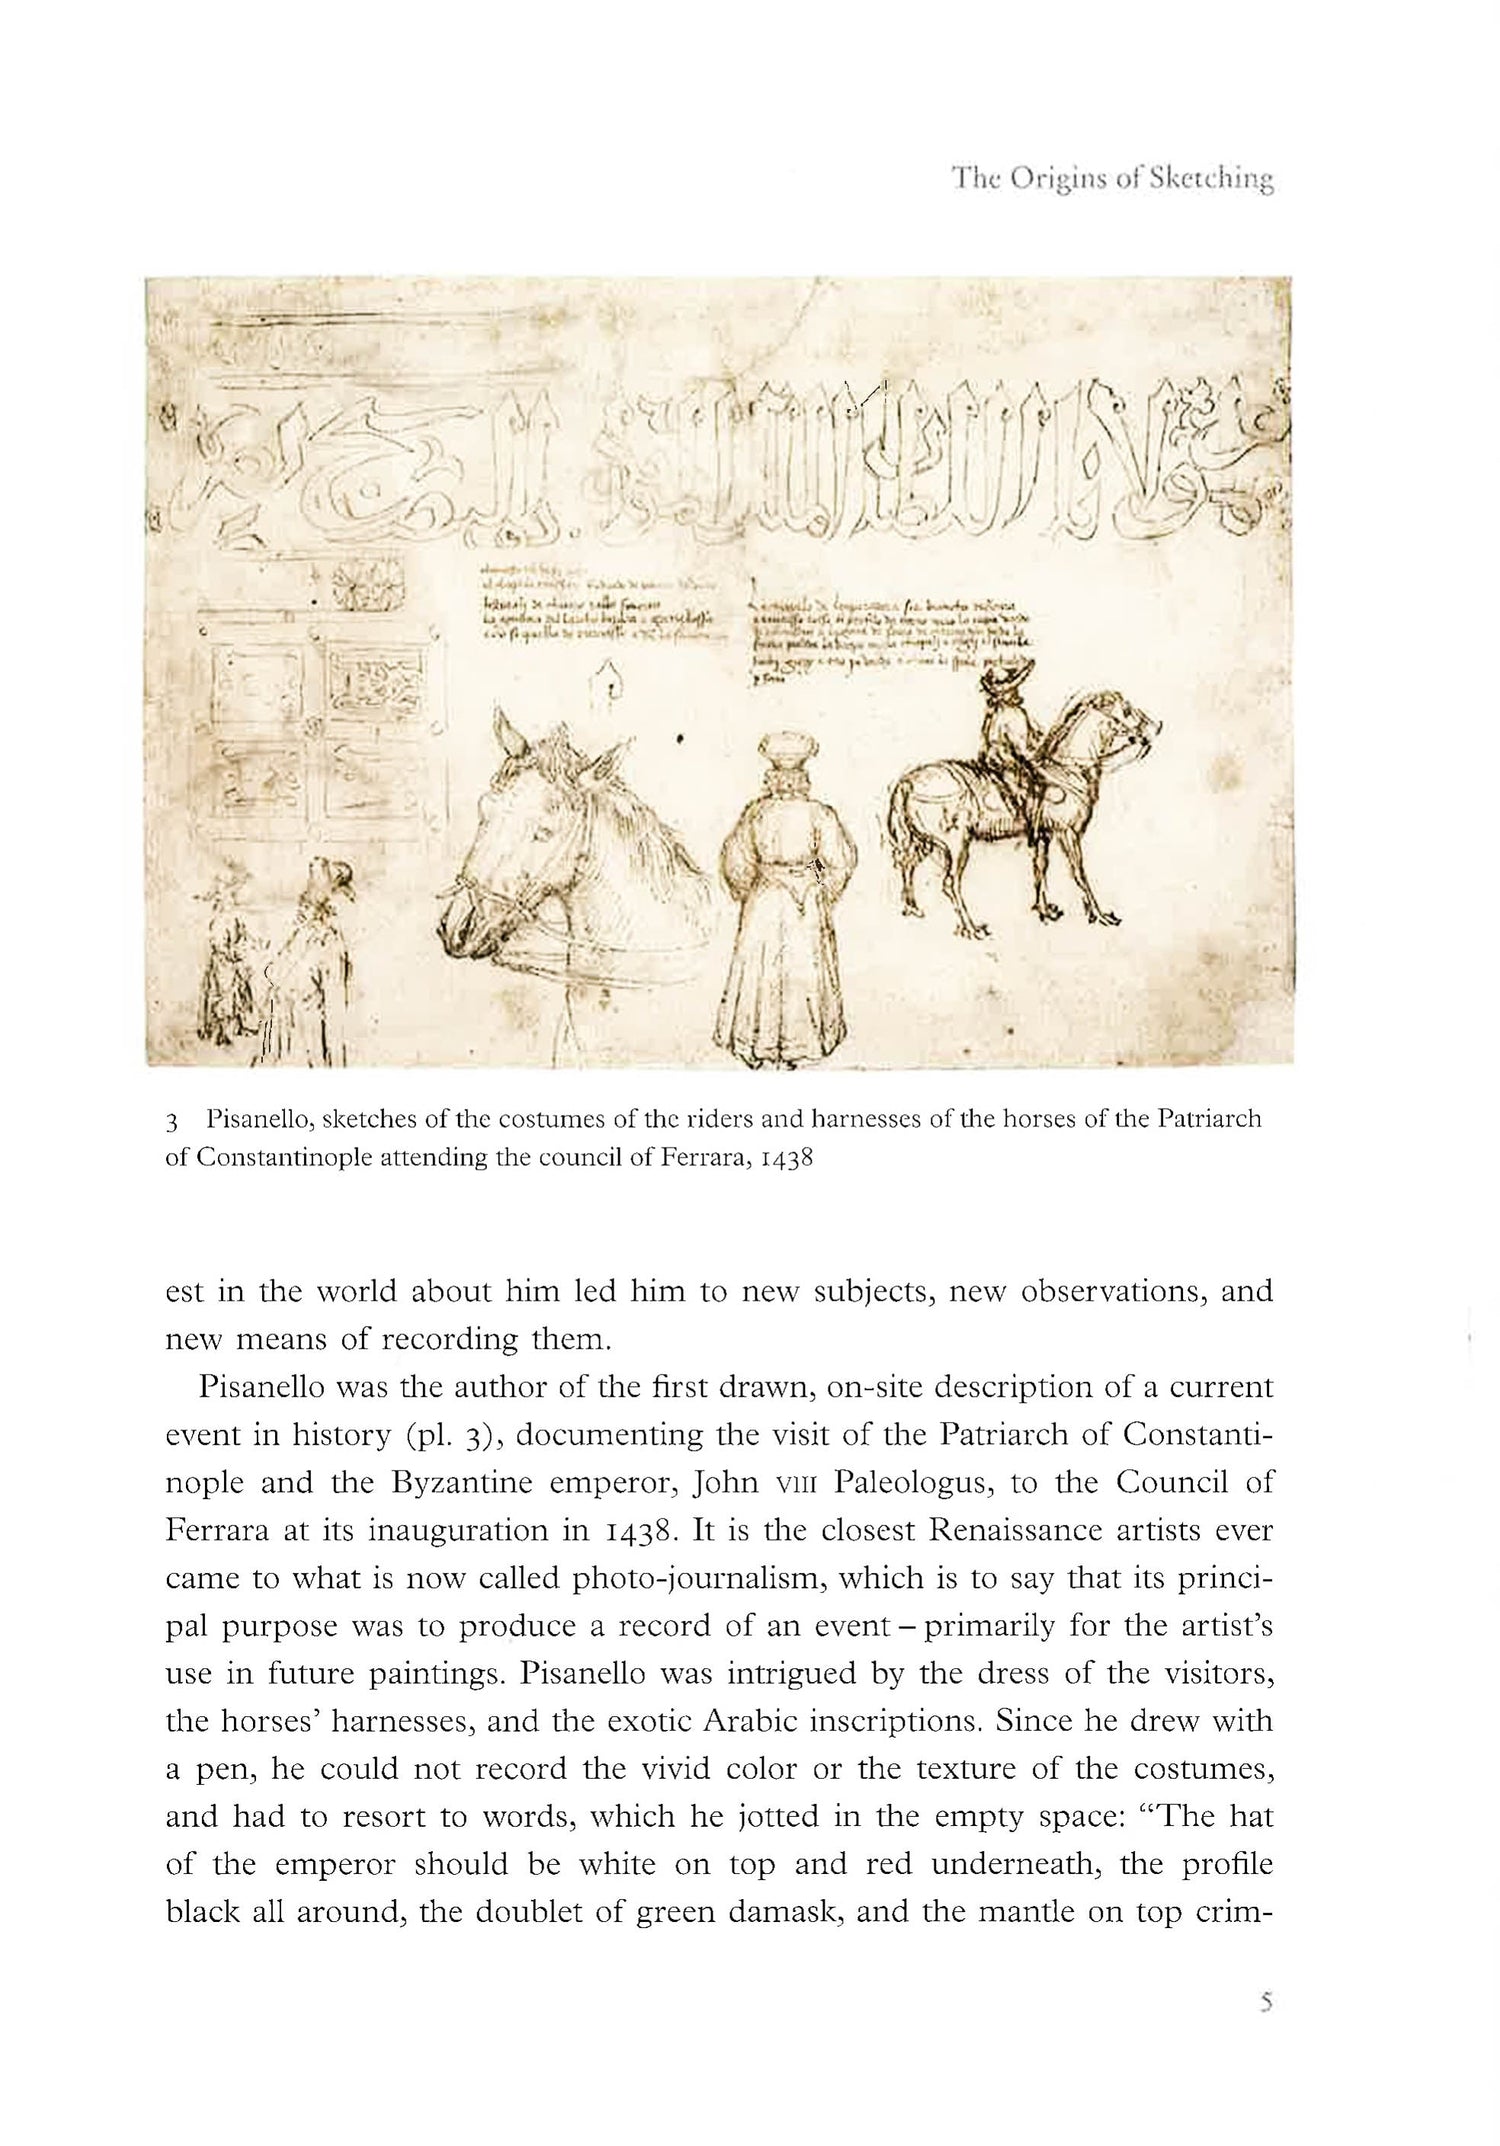 The Origins of Sketching
3 Pisanello, sketches of the costumes of the riders and harnesses of the horses of the Patriarch
of Constantinople attending the council of Ferrara, 1438
est in the world about him led him to new subjects, new observations, and
new means of recording them.
Pisanello was the author of the first drawn, on-site description of a current
event in history (pl. 3), documenting the visit of the Patriarch of Constanti-
nople and the Byzantine emperor, John VIII Paleologus, to the Council of
Ferrara at its inauguration in 1438. It is the closest Renaissance artists ever
came to what is now called photo-journalism, which is to say that its princi-
pal purpose was to produce a record of an event – primarily for the artist’s
use in future paintings. Pisanello was intrigued by the dress of the visitors,
the horses’ harnesses, and the exotic Arabic inscriptions. Since he drew with
a pen, he could not record the vivid color or the texture of the costumes,
and had to resort to words, which he jotted in the empty space: “The hat
of the emperor should be white on top and red underneath, the profile
black all around, the doublet of green damask, and the mantle on top crim-
5